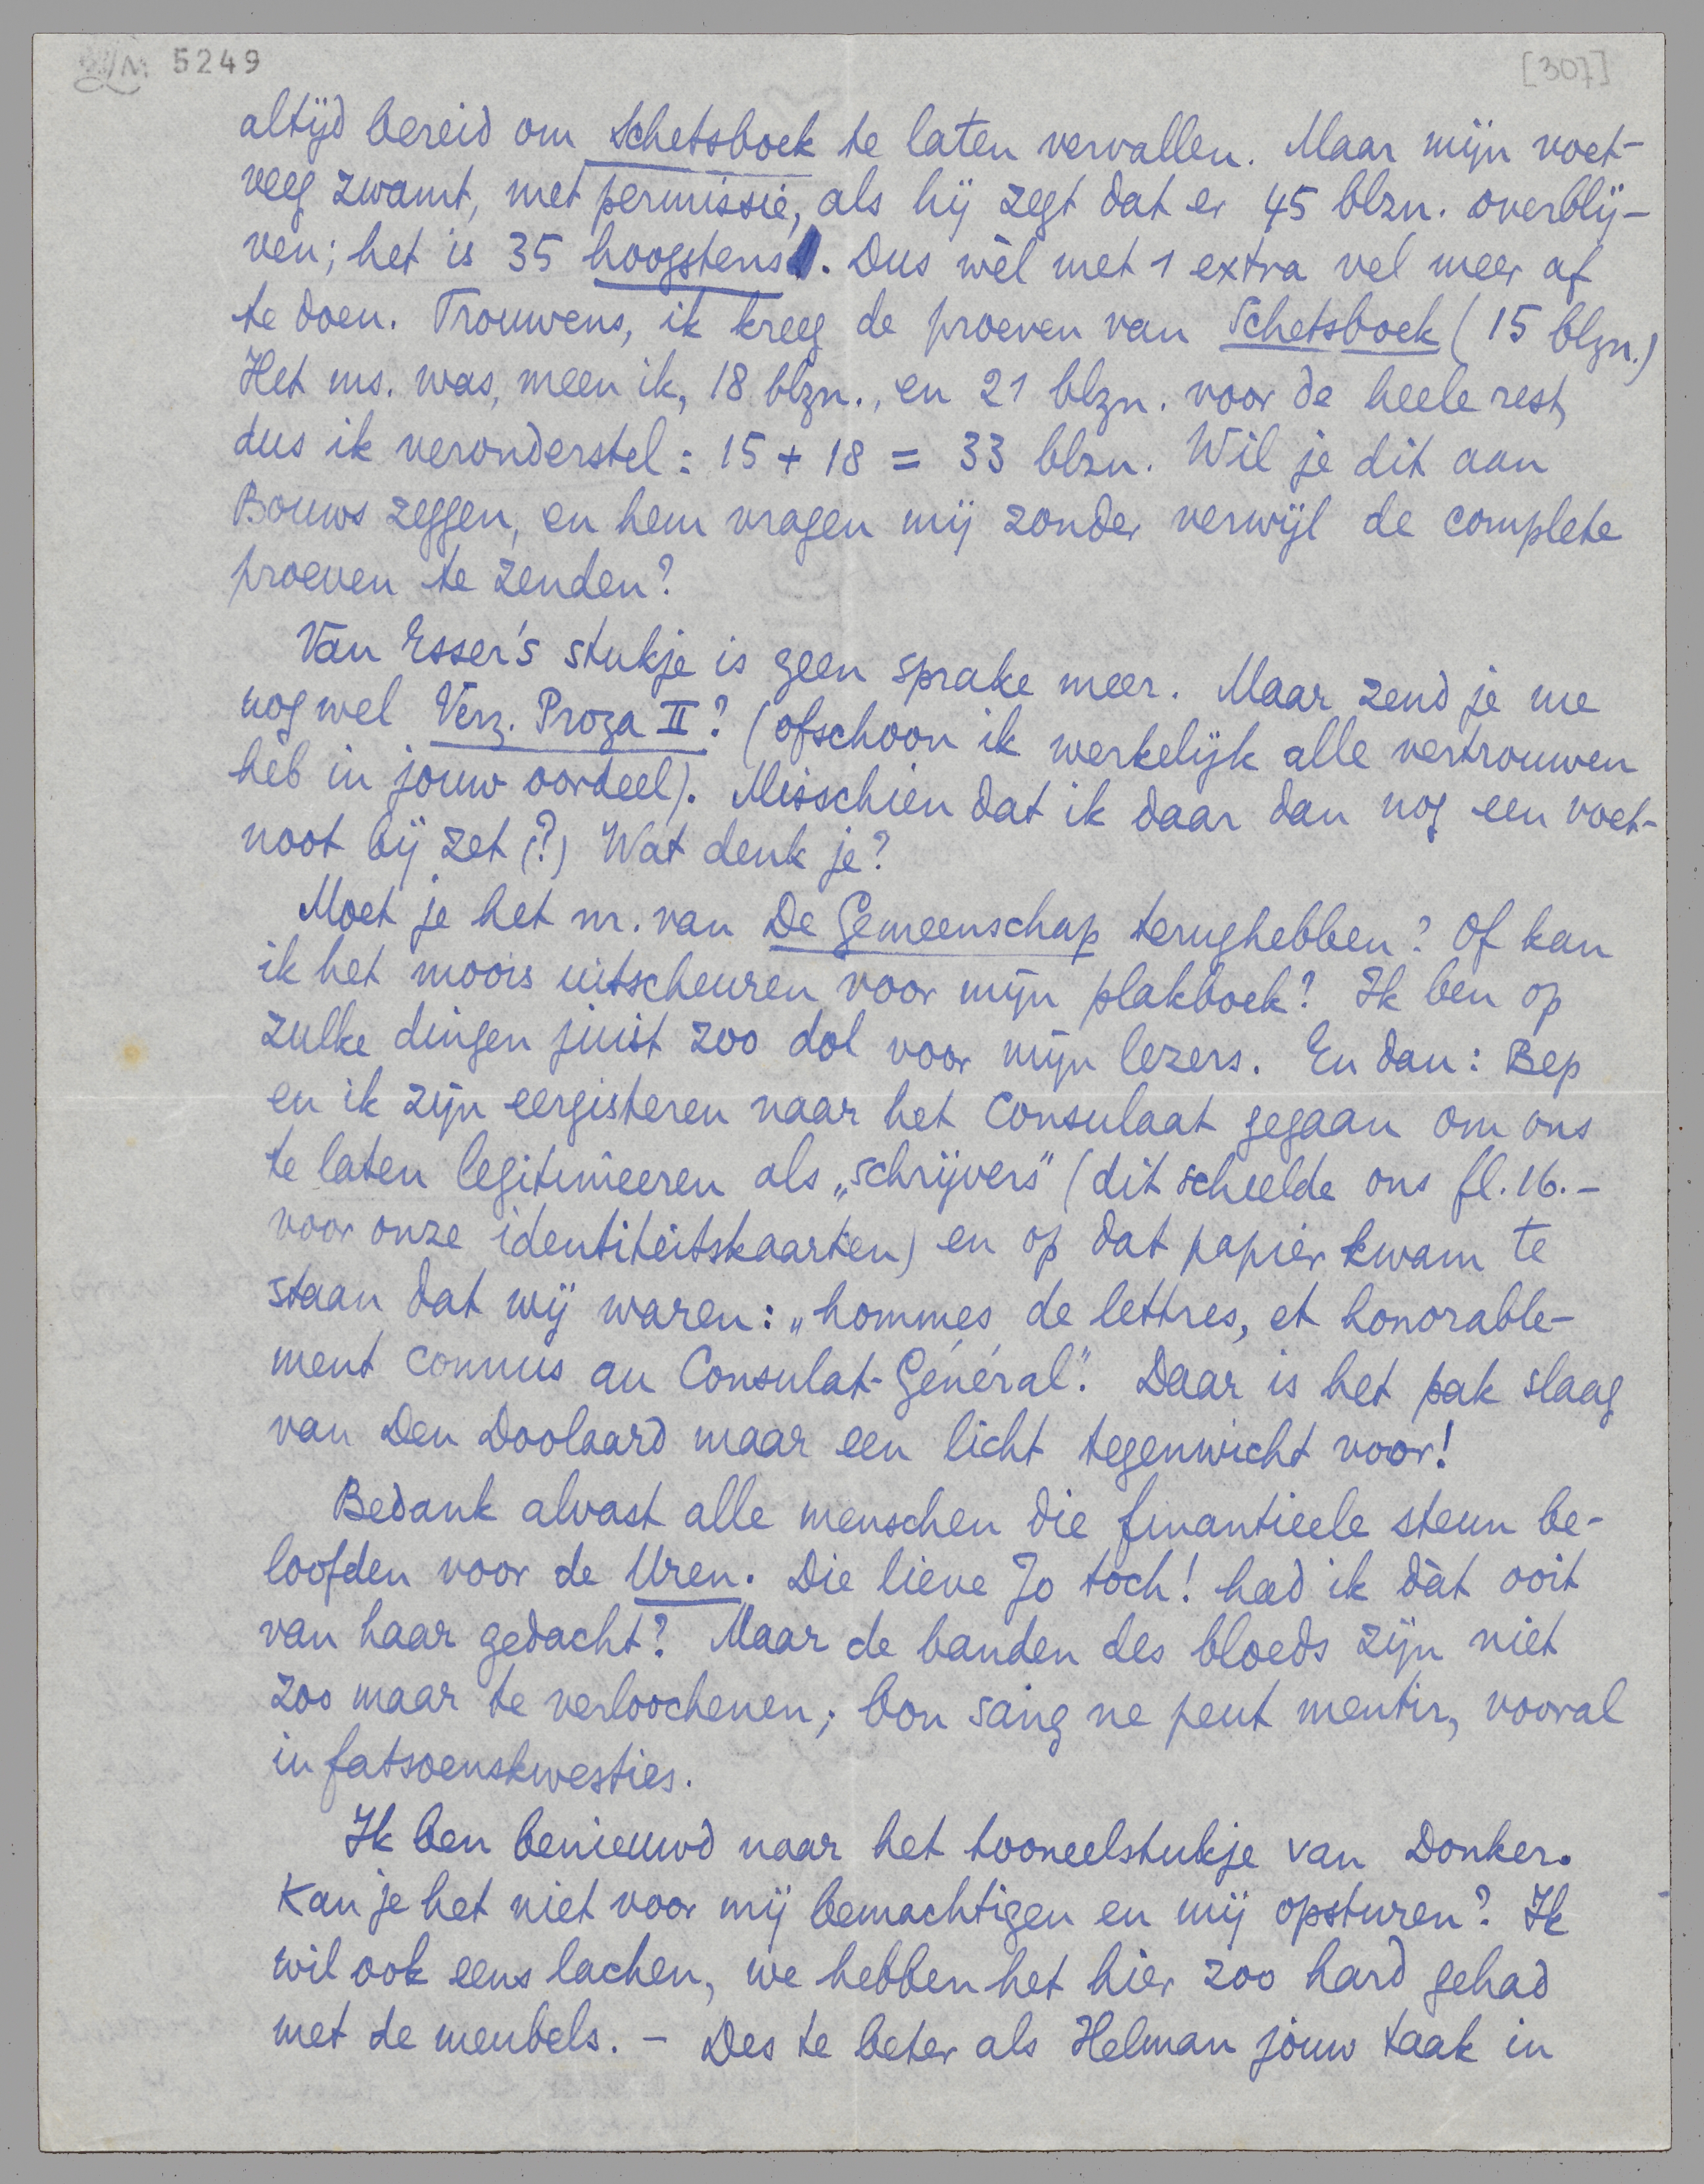 5249
[307]
altijd bereid om Schetsboek te laten vervallen. Maar mijn voet-
veeg zwamt, met permissie, als hij zegt dat er 45 blzn. overblij-
ven; het is 35 hoogstens. Dus wèl met 1 extra vel meer af
te doen. Trouwens, ik kreeg de proeven van Schetsboek (15 blzn.)
Het ms. was, meen ik, 18 blzn., en 21 blzn. voor de heele rest,
dus ik veronderstel: 15 + 18 = 33 blzn. Wil je dit aan
Bouws zeggen, en hem vragen mij zonder verwijl de complete
proeven te zenden?
Van Esser's stukje is geen sprake meer. Maar zend je me
nog wel Verz. Proza II? (ofschoon ik werkelijk alle vertrouwen
heb in jouw oordeel). Misschien dat ik daar dan nog een voet-
noot bij zet (?) Wat denk je?
Moet je het nr. van De Gemeenschap terughebben? Of kan
ik het moois uitscheuren voor mijn plakboek? Ik ben op
zulke dingen juist zoo dol voor mijn lezers. En dan: Bep
en ik zijn eergisteren naar het Consulaat gegaan om ons
te laten legitimeeren als „schrijvers" (dit scheelde ons fl. 16.-
voor onze identiteitskaarten) en op dat papier kwam te
staan dat wij waren: „hommes de lettres, et honorable-
ment connus au Consulat-Général". Daar is het pak slaag
van Den Doolaard maar een licht tegenwicht voor!
Bedank alvast alle menschen die finantieele steun be-
loofden voor de Uren. Die lieve Jo toch! had ik dàt ooit
van haar gedacht? Maar de banden des bloeds zijn niet
zoo maar te verloochenen; bon sang ne peut mentir, vooral
in fatsoenskwesties.
Ik ben benieuwd naar het tooneelstukje van Donker.
Kan je het niet voor mij bemachtigen en mij opsturen? Ik
wil ook eens lachen, we hebben het hier zoo hard gehad
met de meubels. – Des te beter als Helman jouw taak in